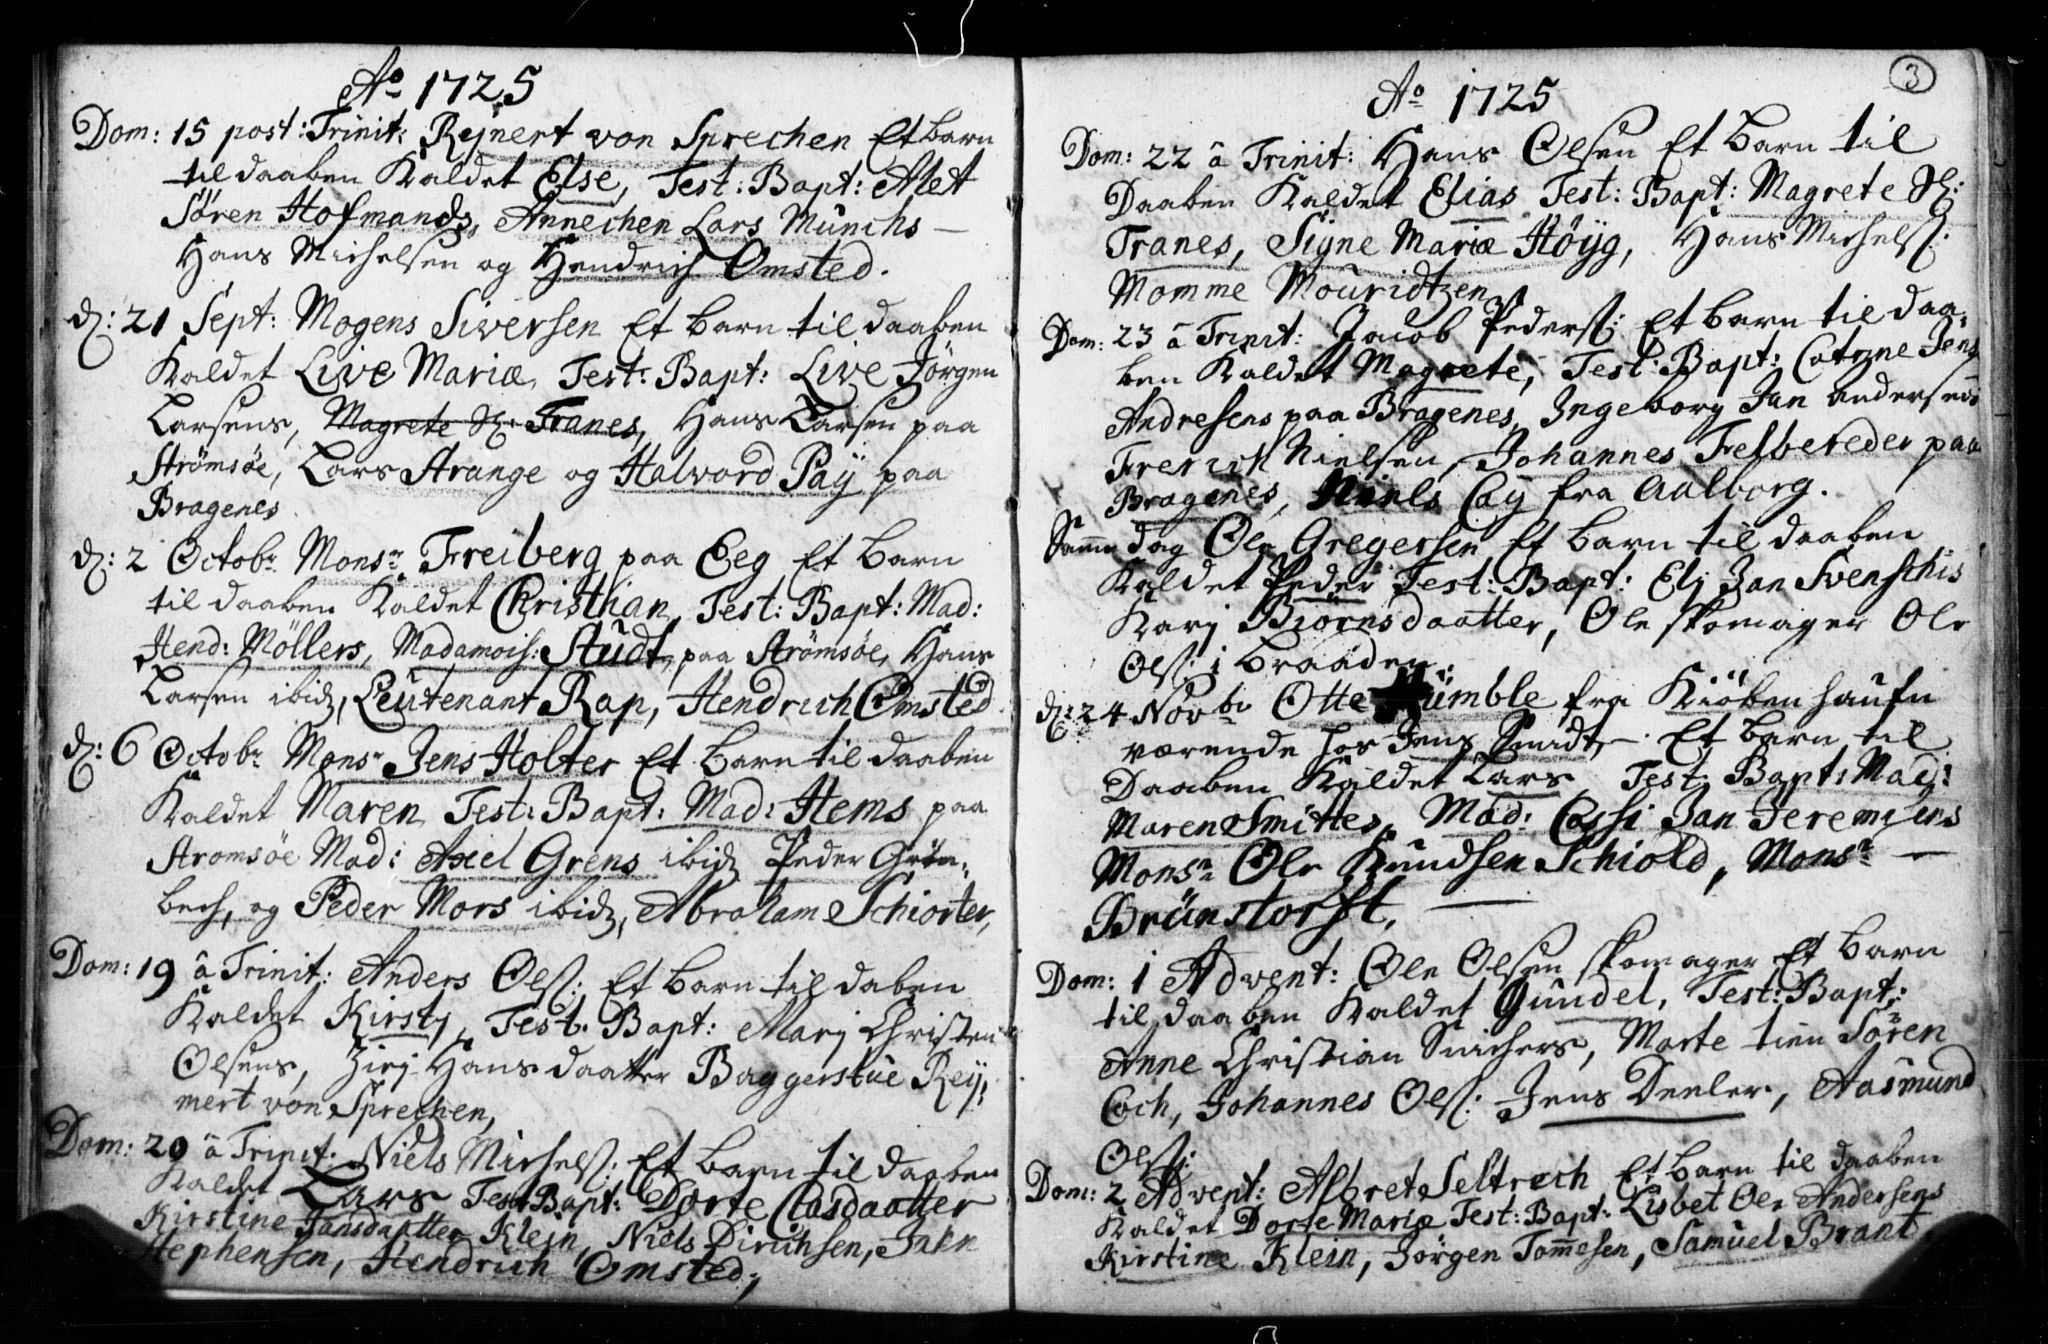 Ao 1725
Dom: 15 post: Trinit: Rejnert von Sprechen Et barn
til daaben Kaldet Else, Test: Bapt: Alet
Sören Hofmands, Annechen Lars Munchs
Hans Michelsen og Hendrich Omsted.
d: 21 Sept: Mogens Siversen Et barn til daaben
Kaldet Live Mariæ, Test: Bapt: Live Jörgen
Larsens, Magrete Sl: Tranes, Hans Larsen paa
Strömsöe, Lars Strange og Halvord Paÿ paa
Bragenes
d: 2 Octobr Monsr Freiberg paa Eeg Et barn
til daaben Kaldet Christhian, Test: Bapt: Mad:
Hend: Möllers, Madamois: Studt, paa Strömsöe, Hans
Larsen ibid, Leutenant Rap, Hendrich Omsted
d: 6 Octobr Monsr Jens Holter Et barn til daaben
Kaldet Maren Test: Bapt: Mad: Hems paa
Stromsöe Mad: Axel Grens ibid Peder Grön-
bech, og Peder Mors ibid, Abraham Schiorter,
Dom: 19 â Trinit: Anders Ols: Et barn til daben
Kaldet Kirstj, Test: Bapt: Marj Christen
Olsens, Zirj Hansdaatter Baggerstue Reÿ-
nert von Sprechen,
Dom: 20 â Trinit: Niels Michels: Et barn til daaben
Kaldet Lars Test: Bapt: Dorte Clasdaatter
Kirstine Jansdaatter Klein, Niels Dirichsen,
Stephensen, Hendrich Omsted,
3
Ao 1725
Dom: 22 â Trinit: Hans Olsen Et barn til
Daaben Kaldet Elias Test: Bapt: Magrete Sl:
Tranes, Signe Mariæ Höÿg, Hans Michels:
Momme Mouridtzen
Dom: 23 â Trinit: Jacob Peders: Et barn til daa-
ben Kaldet Magrete, Test: Bapt: Catrine Jens
Andresens paa Bragenes, Ingeborg Jan Andersens
Frerich Nielsen, Johannes Felbereder paa
Bragenes, Niels Coy fra Aalborg.
Samme dag Ole Gregersen Et barn til daaben
Kaldet Peder Test: Bapt: Elj Jan Svenschis
Karj Biörnsdaatter, Ole skomager Ole
Ols: i braaden.
d: 24 Novbr Otte Humble fra Kiöbenhaufn
værende hos Jens Smidt. Et barn til
Daaben Kaldet Lars Test: Bapt: Mad:
Maren Smittes, Mad: Cassi Jan Jeremiens
Monsr Ole Knudsen Schiold, Monsr
Brünstorfft,
Dom: 1 Advent: Ole Olsen skomager Et barn
til daaben Kaldet Gundel, Test: Bapt:
Anne Christian Snichers, Marte Sören
Coch, Johannes Ols: Jens Deeler, Aasmund
Ols:
Dom: 2 Advent: Albret Seltrech Et barn til daaben
Kaldet Dorte Mariæ Test: Bapt: Lisbet Ole Andersens
Kirstine Klein, Jörgen Tommesen, Samuel Brant